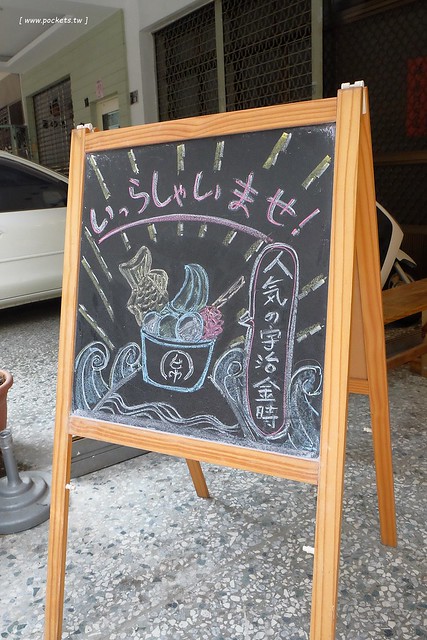 [ www.pockets.tw ]
いらっしゃいませ!
人気の宇治金時